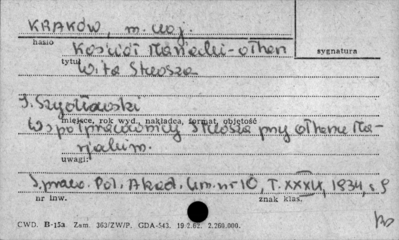 KRAKÓW, m. woj.
hasło
Kościół Mariacki - ołtarz
sygnatura
tytuł
Wita Stwosza
J. Szydłowski
miejsce, rok wyd., nakładca, format, objętość
Współpracownicy Stwosza przy ołtarzu Ma-
rjackim.
uwagi:
Spraw. Pol. Akad. Um. nr 10, T. XXXIX, 1934, s. 9
nr inw.
znak klas.
CWD. B-15a Zam. 363/ZW/P. GDA-543. 19.2.62. 2.260.000.